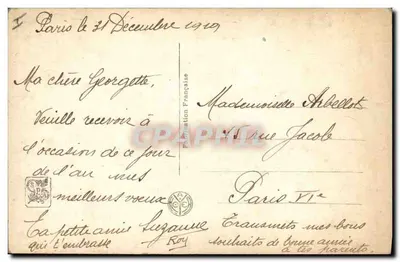 Paris le 31 Décembre 1919
Ma chère Georgette,
Veuille recevoir à
l'occasion de ce jour
de l'an mes
meilleurs voeux
Ta petite amie Suzanne
qui t'embrasse Roy
Mademoiselle Arbellot
rue Jacob
Paris VIe
Transmets mes bons
souhaits de bonne année
à tes parents.
CPARHAMA